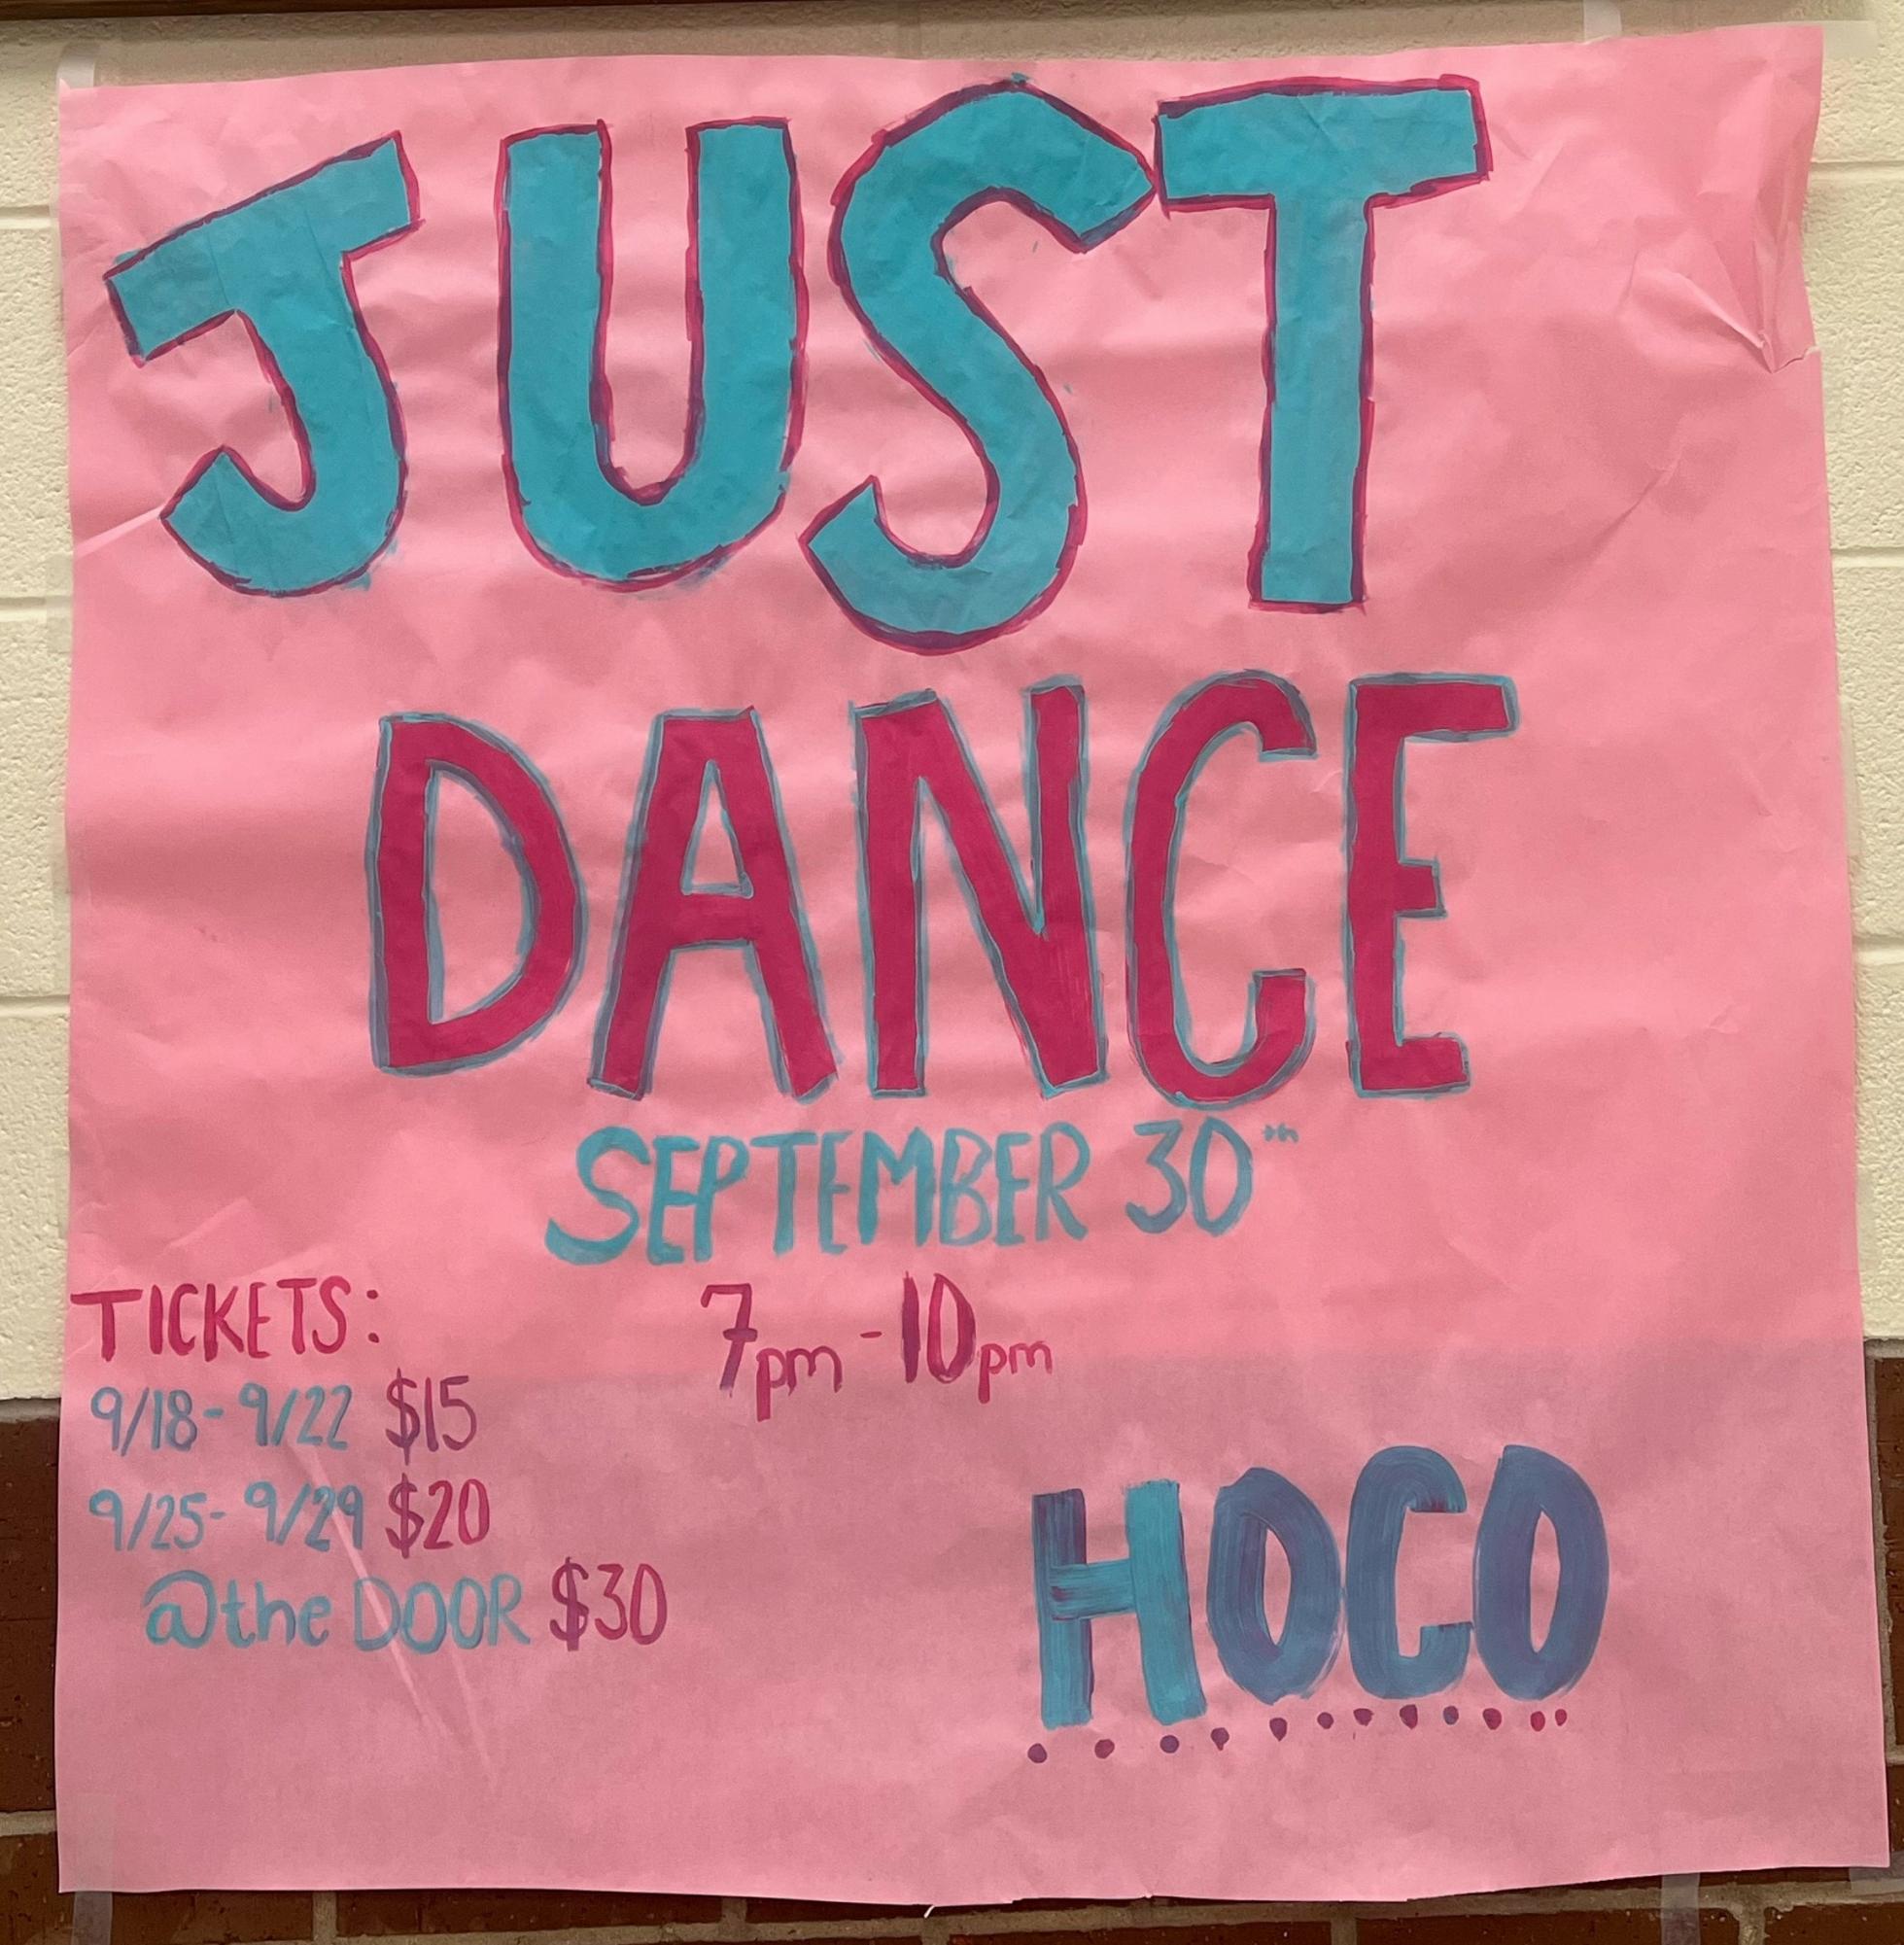 JUST
DANCE
SEPTEMBER 30th
7pm - 10pm
TICKETS:
9/18 - 9/22 $15
9/25 - 9/29 $20
@the DOOR $30
HOCO